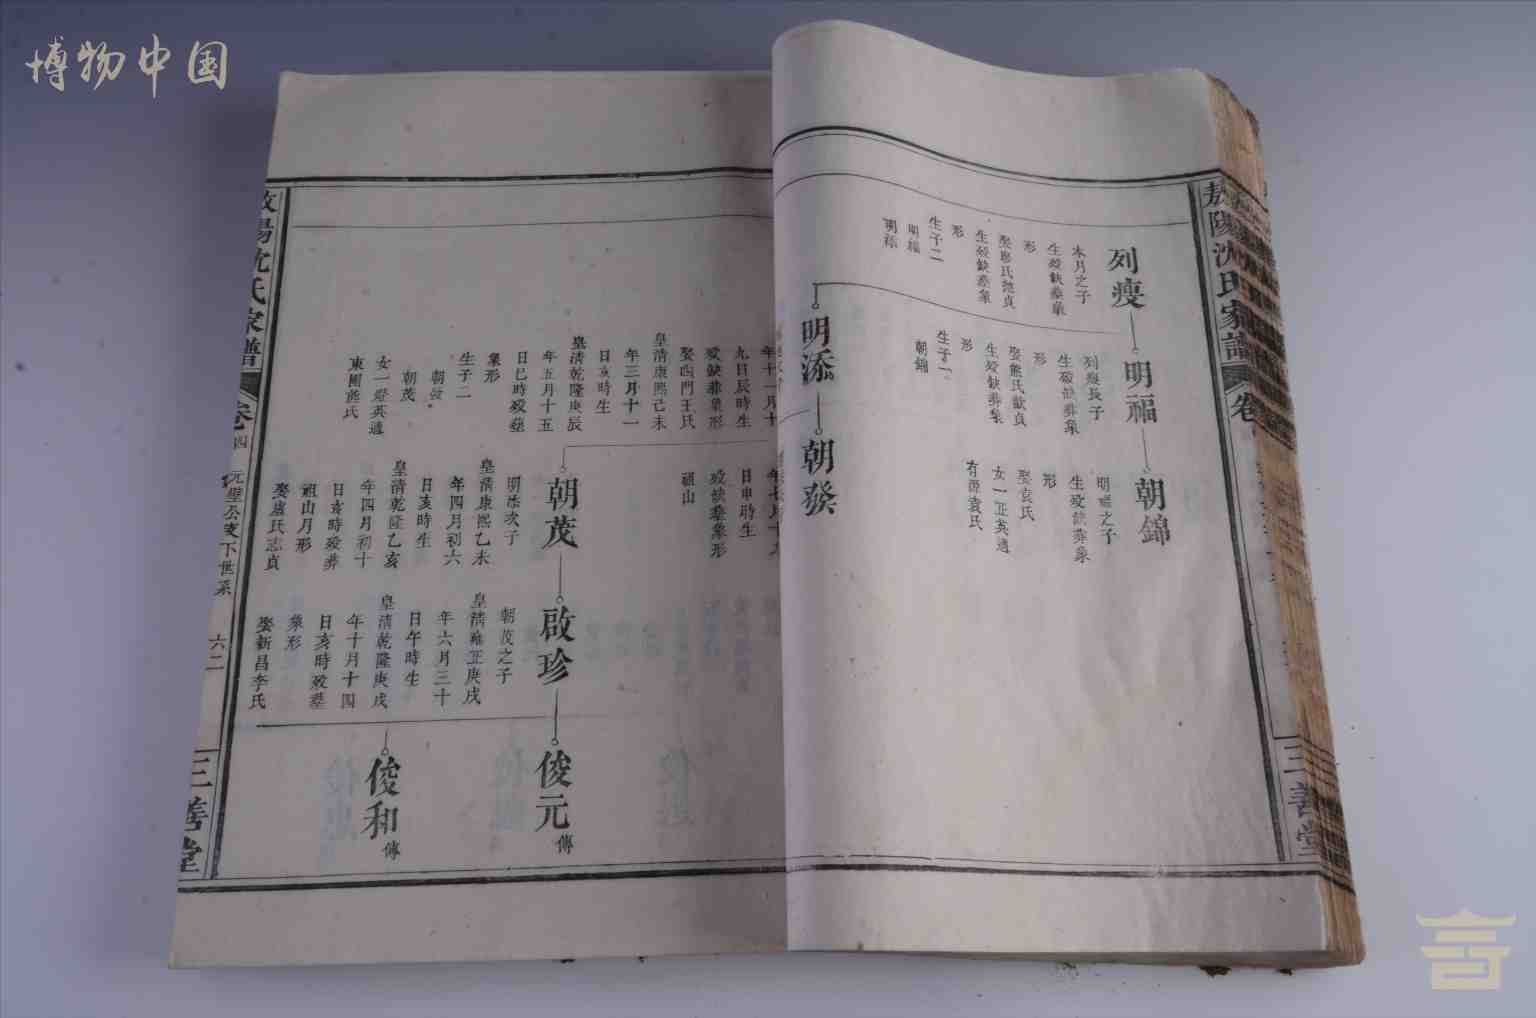 博物中国
敖陽沈氏家譜
卷
三善堂
列瘦
本月之子
生歿缺塟象
形
生歿缺塟象
形
生子二
明福
明添
明福
列瘦長子
生歿缺葬象
形
娶熊氏歆貞
生歿缺葬象
形
生子一
朝錦
朝錦
明福之子
生歿缺葬象
形
娶袁氏
女一正英適
有源袁氏
明添
朝發
年十一月十
九日辰時生
歿缺葬象形
娶四門王氏
皇清康熙己未
年三月十一
日亥時生
皇清乾隆庚辰
年五月十五
日巳時歿塟
象形
生子二
朝發
朝茂
女一
東圃熊氏
日申時生
歿缺塟象形
祖山
朝茂
明添次子
皇清康熙乙未
年四月初六
日亥時生
皇清乾隆乙亥
年四月初十
日亥時歿葬
祖山月形
娶盧氏志貞
啟珍
朝茂之子
皇清雍正庚戌
年六月三十
日午時生
皇清乾隆庚戌
年十月十四
日亥時歿塟
象形
娶新昌李氏
俊元
傳
俊和
傳
敖陽沈氏家譜
卷四
元璧公支下世系
六二
三善堂